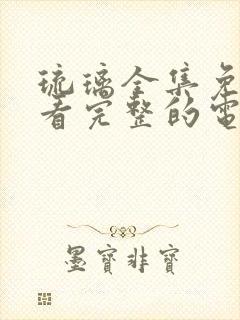 琉璃全集免
看完整的電
墨寶非寶